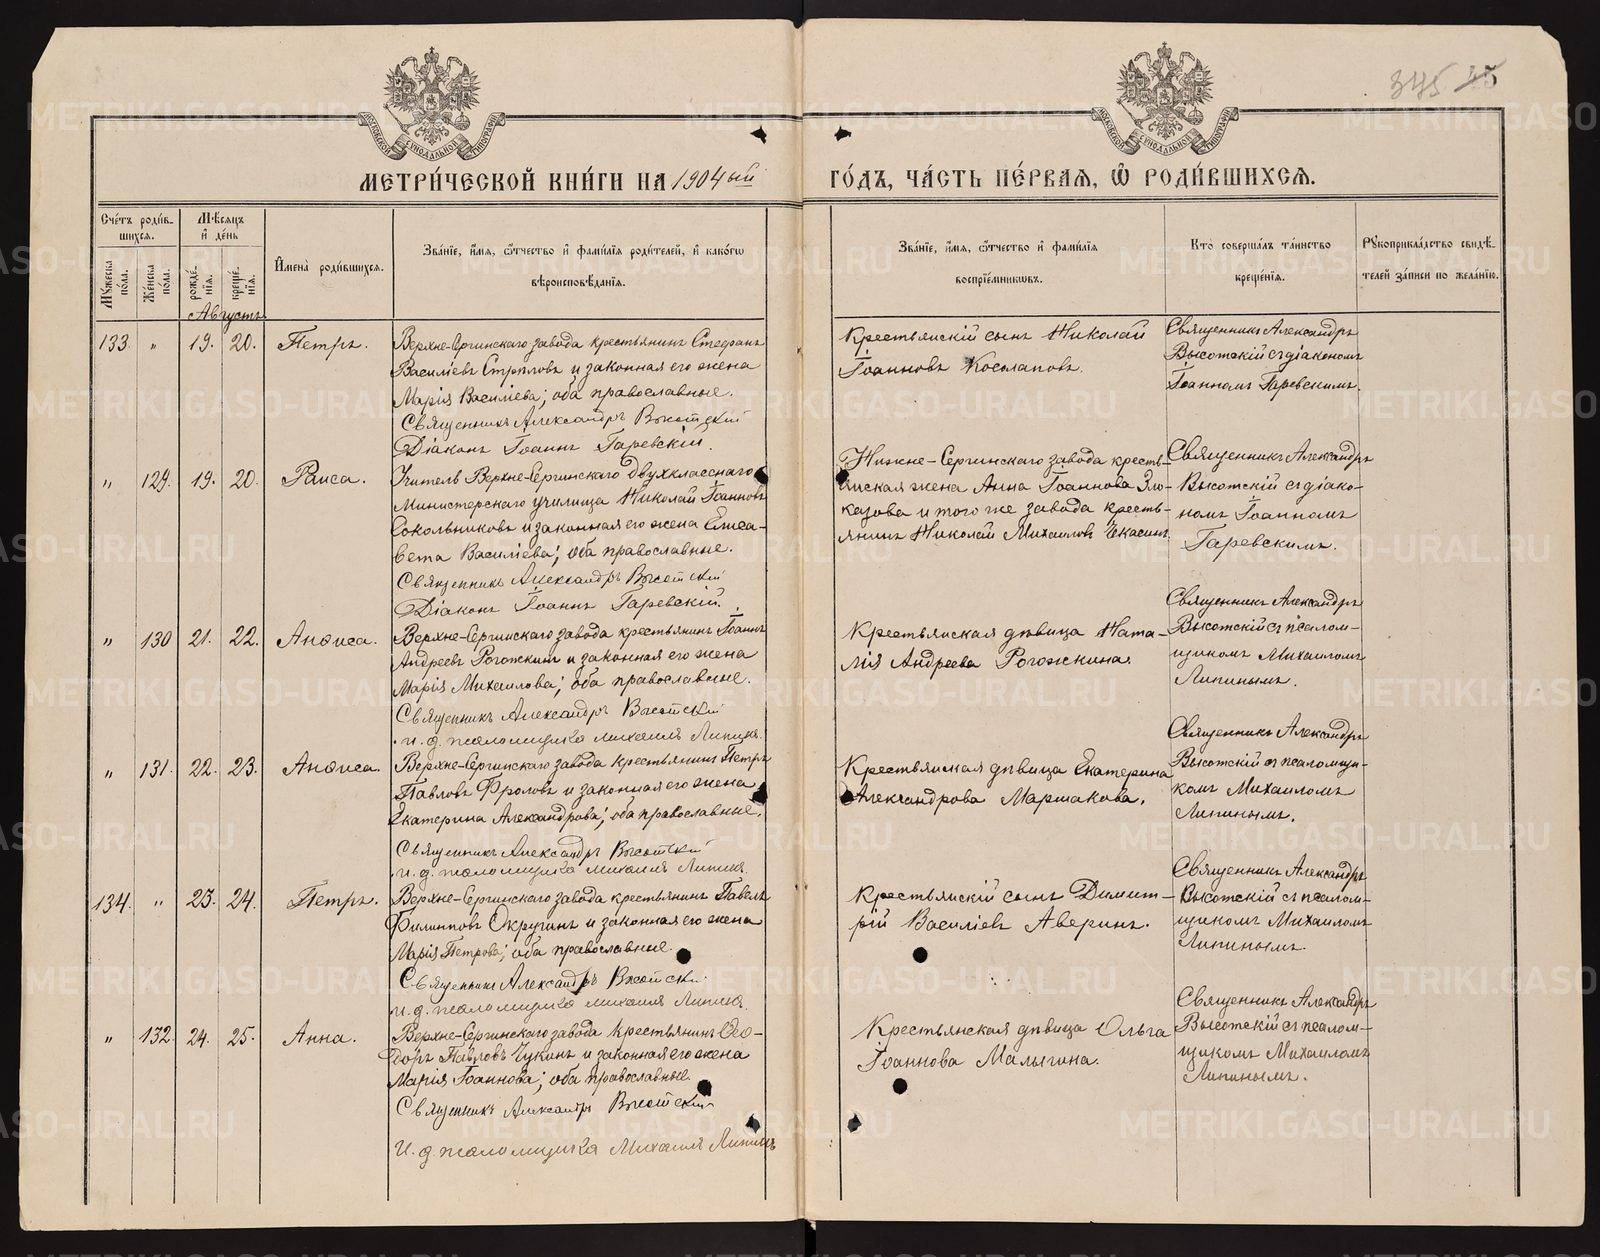 345 45
МОСКОВСКОЙ СѴНОДАЛЬНОЙ ТИПОГРАФІИ
МОСКОВСКОЙ СѴНОДАЛЬНОЙ ТИПОГРАФІИ
МЕТРИ́ЧЕСКОЙ КНИ́ГИ НА 1904ый
ГО́ДЪ, ЧА́СТЬ ПЕ́РВАЯ, Ѽ РОДИ́ВШИХСЯ.
Сче́тъ роди́в-
шихся.
Мѣ́сяцъ
и҆ де́нь
Му́жеска по́ла.
Же́нска по́ла.
рожде́нїя.
креще́нїя.
И҆мена̀ роди́вшихся.
Зва́нїе, и҆́мя, ѻ҆́тчество и҆ фами́лїя роди́телей, и҆ како́гѡ
вѣроисповѣ́данїя.
Зва́нїе, и҆́мя, ѻ҆́тчество и҆ фами́лїя
воспрїе́мниковъ.
Кто̀ соверша́лъ та́инство
креще́нїя.
Рꙋкоприкла́дство свидѣ́-
телей за́писи по жела́нїю.
Августъ
133 „ 19. 20. Петръ.
Верхне-Сергинскаго завода крестьянинъ Стефанъ
Василіевъ Стрѣловъ и законная его жена
Марія Василіева; оба православные.
Священникъ Александръ Высотскій
Діаконъ Іоаннъ Гаревскій.
Крестьянскій сынъ Николай
Іоанновъ Косолаповъ.
Священникъ Александръ
Высотскій съ діакономъ
Іоанномъ Гаревскимъ.
„ 129. 19. 20. Раиса.
Учитель Верхне-Сергинскаго двухкласснаго
Министерскаго училища Николай Іоанновъ
Сокольниковъ и законная его жена Елиса-
вета Василіева; оба православные.
Священникъ Александръ Высотскій
Діаконъ Іоаннъ Гаревскій.
Нижне-Сергинскаго завода кресть-
янская жена Анна Іоаннова Зло-
казова и того же завода кресть-
янинъ Николай Михаиловъ Чекасинъ
Священникъ Александръ
Высотскій съ діако-
номъ Іоанномъ
Гаревскимъ.
„ 130 21. 22. Анѳиса.
Верхне-Сергинскаго завода крестьянинъ Іоаннъ
Андреевъ Рогожкинъ и законная его жена
Марія Михаилова; оба православные.
Священникъ Александръ Высотскій
и. д. псаломщика Михаилъ Липинъ.
Крестьянская дѣвица Ната-
лія Андреева Рогожкина.
Священникъ Александръ
Высотскій съ псалом-
щикомъ Михаиломъ
Липинымъ.
„ 131. 22. 23. Анѳиса.
Верхне-Сергинскаго завода крестьянинъ Петръ
Павловъ Фроловъ и законная его жена
Екатерина Александрова; оба православные.
Священникъ Александръ Высотскій
и. д. псаломщика Михаилъ Липинъ.
Крестьянская дѣвица Екатерина
Александрова Маршакова.
Священникъ Александръ
Высотскій съ псаломщи-
комъ Михаиломъ
Липинымъ.
134. „ 23. 24. Петръ.
Верхне-Сергинскаго завода крестьянинъ Павелъ
Филипповъ Округинъ и законная его жена
Марія Петрова; оба православные.
Священникъ Александръ Высотскій
и. д. псаломщика Михаилъ Липинъ.
Крестьянскій сынъ Димит-
рій Василіевъ Аверинъ.
Священникъ Александръ
Высотскій съ псалом-
щикомъ Михаиломъ
Липинымъ.
„ 132. 24. 25. Анна.
Верхне-Сергинскаго завода крестьянинъ Ѳео-
доръ Павловъ Чукинъ и законная его жена
Марія Іоаннова; оба православные.
Священникъ Александръ Высотскій
и. д. псаломщика Михаилъ Липинъ
Крестьянская дѣвица Ольга
Іоаннова Малыгина.
Священникъ Александръ
Высотскій съ псалом-
щикомъ Михаиломъ
Липинымъ.
METRIKI.GASO-URAL.RU